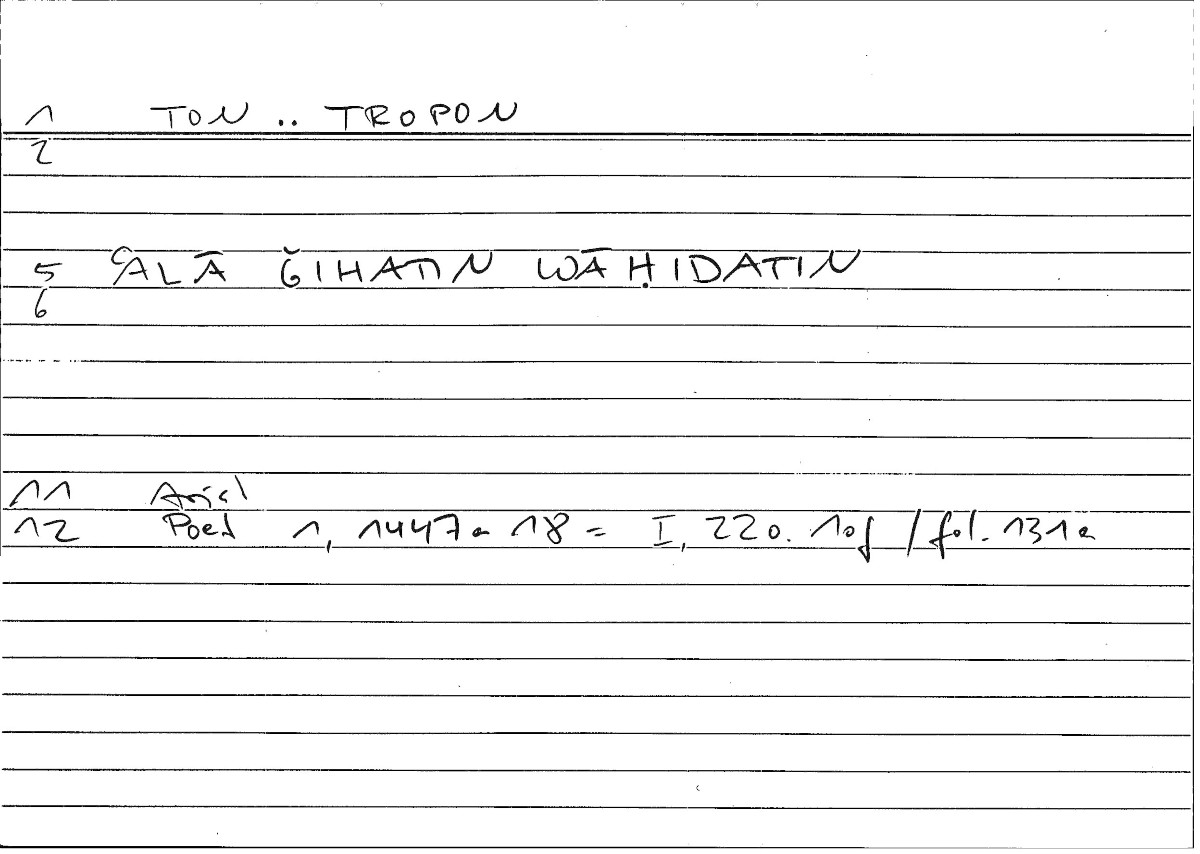 1 TON .. TROPON
2
5 ʿALĀ ǦIHATIN WĀḤIDATIN
6
11 Arist
12 Poet 1, 1447a 18 = I, 220. 10f / fol. 131a